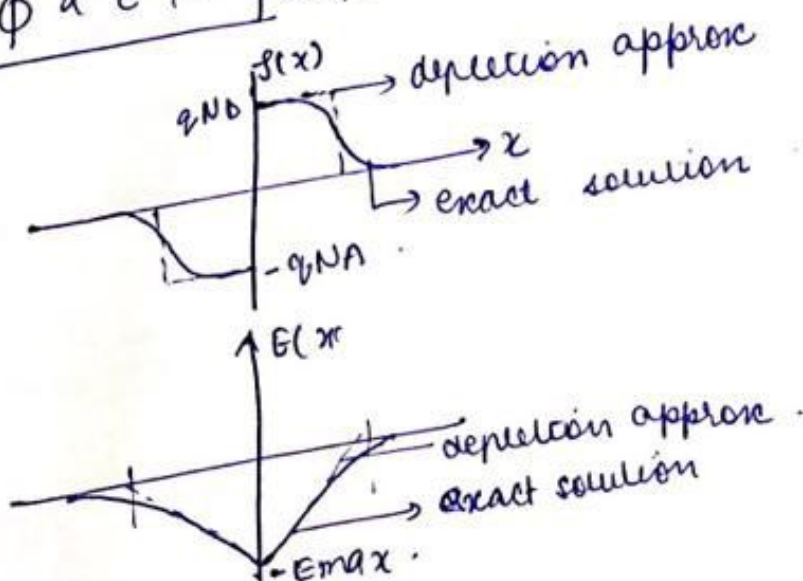 ρ(x)
depletion approx
qND
x
exact solution
- qNA .
E(x
depletion approx .
exact solution
- Emax .